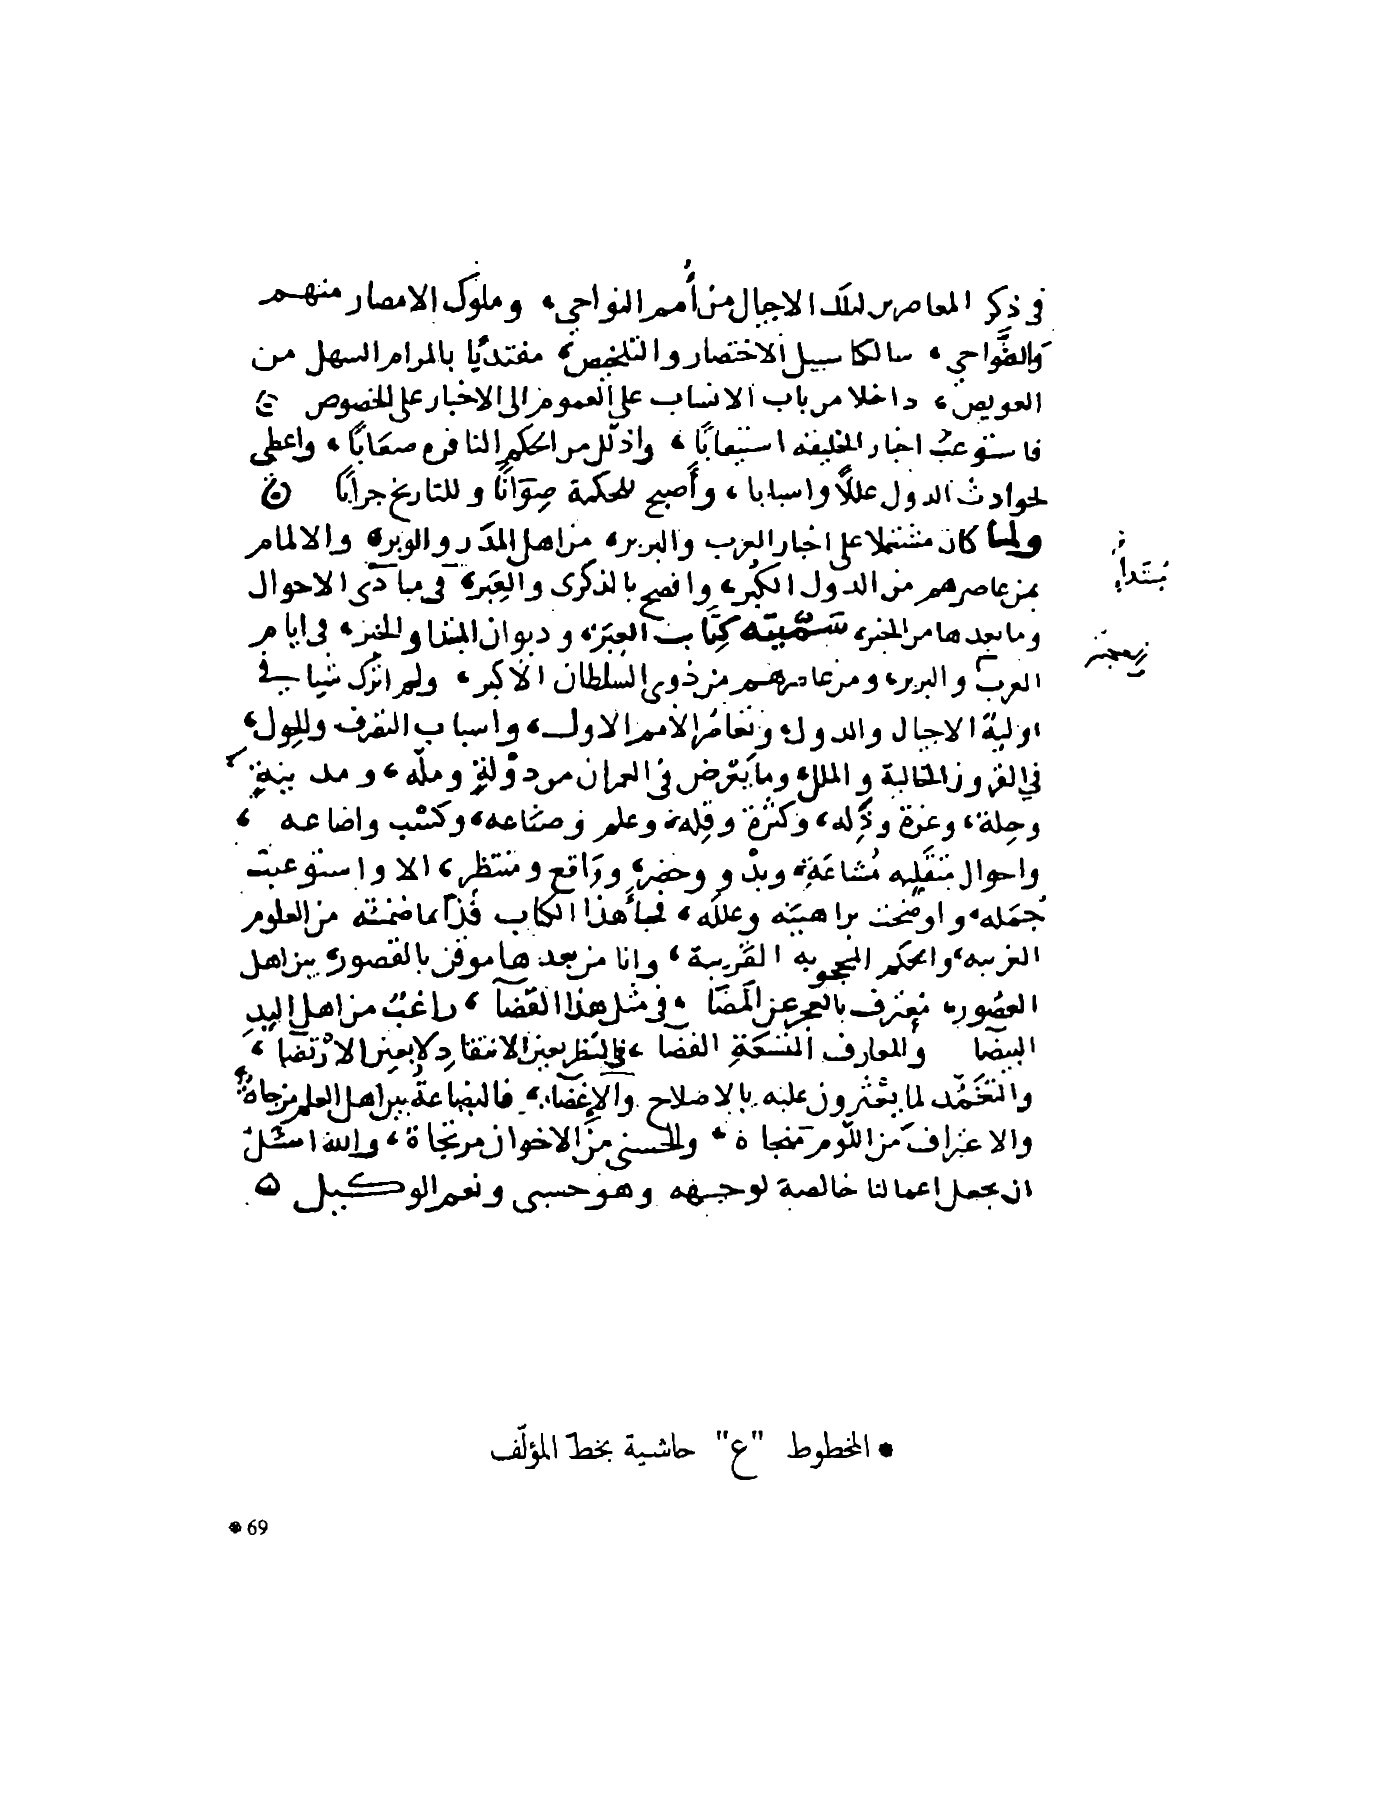 في ذكر المعاصرين لتلك الاجيال من أُمم النواحي، وملوك الامصار منهم
والضَّواحي، سالكا سبيل الاختصار والتلخيص، مفتديًا بالمرام السهل من
العويص، داخلا من باب الانساب على العموم الى الاخبار على الخصوص
فاستوعبَ اخبار الخليفه استيعابًا، واذلّل من الحكم النافره صعَابًا، واعطى
لحوادث الدول عللًا واسبابا، وأصبح للحكمة صِوَانًا وللتاريخ جرابًا
ولما كان مشتملا على اخبار العرب والبربر، من اهل المدَر والوبر، والالمام
بمن عاصرهم من الدول الكُبر، وافصح بالذكرى والعِبَر، في مبادى الاحوال
وما بعدها من الخبر، سَمَّيته كِتَاب العِبَر، وديوان المبتدا والخبر، في ايام
العرب والبربر، ومن عاصرهم من ذوي السلطان الاكبر، ولم اترك شيا في
اوليةِ الاجيال والدول، وتعاصُرِ الامم الاول، واسباب التصرف والحِول،
في القرون الخالية والملل، وما يَعْرض في العمران من دَوْلةٍ وملّه، ومدينةٍ
وحِلة، وعزة وذِله، وكثرة وقِله، وعلم وصناعه، وكسْب واضاعه،
واحوال متقلِبه مُشاعَةٍ، وبدْو وحضر، وواقع ومنتظر، الا واستوعبت
جُمَله، واوضحت براهينه وعلله، فجاء هذا الكتاب فذًا بما ضمنته من العلوم
الغريبه، والحكم المحجوبه القريبة، وانا من بعدها موقن بالقصور، بين اهل
العصُور، معترف بالعجز عن المَضا، في مثل هذا القضا، راغبٌ من اهل اليدِ
البيضا والمعارف المتسَعَةِ الفضا، في النظر بعين الانتقادِ لا بعين الارْتضا،
والتغمّد لما يعْثرون عليه بالاصلاح والاِغضاء، فالبضاعةُ بين اهل العلم مزجاةٌ،
والاعتراف من اللّوم منجاة، والحسنى من الاخوان مرتجاة، والله اسْئلُ
ان يجعل اعمالنا خالصة لوجهه وهو حسبى ونعم الوكيل
مُبتَدأُ
● المخطوط "ع" حاشية بخط المؤلّف
● 69